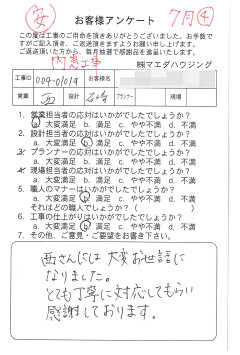 安
お客様アンケート
7月④
この度は工事のご用命を頂きありがとうございました。お手数で
すがご記入頂き、ご返送頂きますようお願い申し上げます。
ご返送頂いた方から、毎月抽選で感謝品を進呈いたします。
内窓工事
㈱マエダハウジング
工事ID 009-01019 お客様名
営業 西 設計 プランナー 現場
1. 営業担当者の応対はいかがでしたでしょうか?
a. 大変満足 b. 満足 c. やや不満 d. 不満
2. 設計担当者の応対はいかがでしたでしょうか?
a. 大変満足 b. 満足 c. やや不満 d. 不満
3. プランナーの応対はいかがでしたでしょうか?
a. 大変満足 b. 満足 c. やや不満 d. 不満
4. 現場担当者の応対はいかがでしたでしょうか?
a. 大変満足 b. 満足 c. やや不満 d. 不満
5. 職人のマナーはいかがでしたでしょうか?
a. 大変満足 b. 満足 c. やや不満 d. 不満
それはどの職人でしょうか?( )
6. 工事の仕上がりはいかがでしたでしょうか?
a. 大変満足 b. 満足 c. やや不満 d. 不満
7. その他、ご意見・ご要望をお書き下さい。
西さんには大変お世話に
なりました。
とても丁寧に対応してもらい
感謝しております。